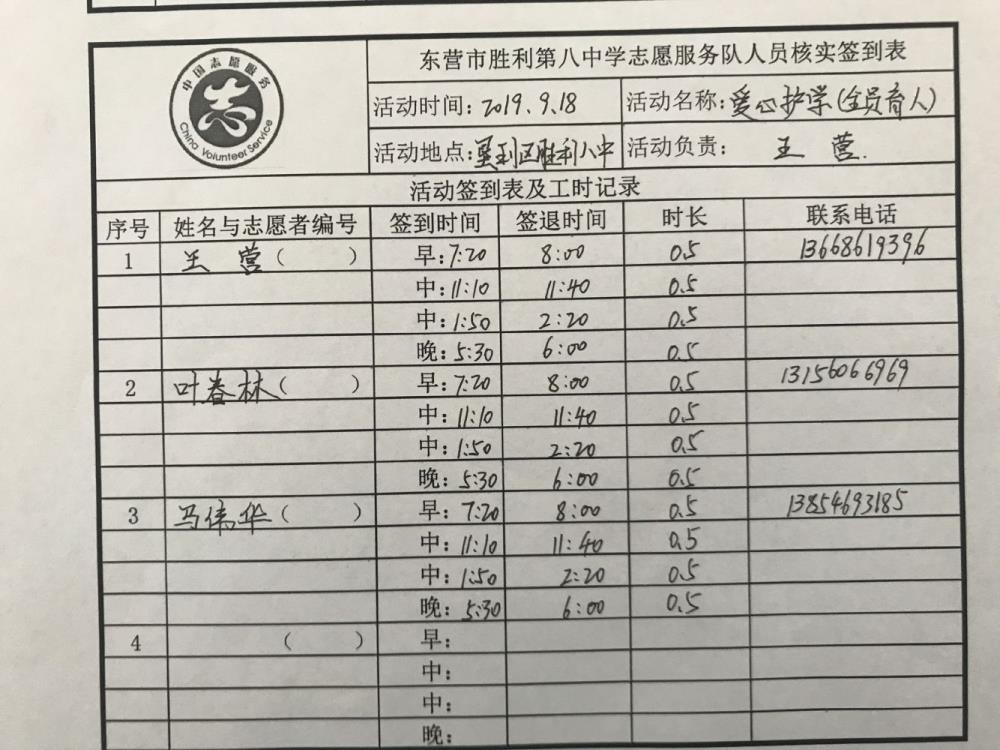 中国志愿服务
China Volunteer Service
东营市胜利第八中学志愿服务队人员核实签到表
活动时间: 2019.9.18 活动名称: 爱心护学(全员育人)
活动地点: 垦利区胜利八中 活动负责: 王营.
活动签到表及工时记录
序号 姓名与志愿者编号 签到时间 签退时间 时长 联系电话
1 王营( ) 早: 7:20 8:00 0.5 13668619396
中: 11:10 11:40 0.5
中: 1:50 2:20 0.5
晚: 5:30 6:00 0.5
2 叶春林( ) 早: 7:20 8:00 0.5 13156066969
中: 11:10 11:40 0.5
中: 1:50 2:20 0.5
晚: 5:30 6:00 0.5
3 马伟华( ) 早: 7:20 8:00 0.5 13854693185
中: 11:10 11:40 0.5
中: 1:50 2:20 0.5
晚: 5:30 6:00 0.5
4 ( ) 早:
中:
中:
晚: